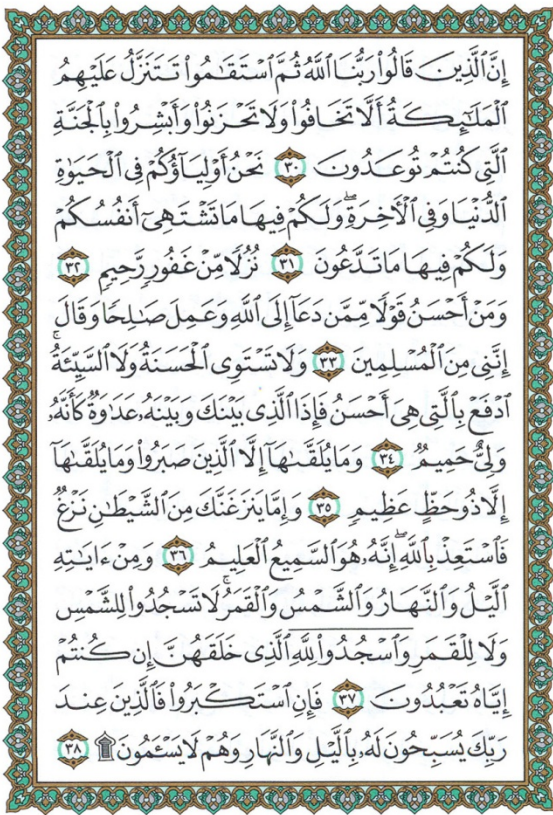 إِنَّ ٱلَّذِينَ قَالُوا۟ رَبُّنَا ٱللَّهُ ثُمَّ ٱسْتَقَٰمُوا۟ تَتَنَزَّلُ عَلَيْهِمُ
ٱلْمَلَٰٓئِكَةُ أَلَّا تَخَافُوا۟ وَلَا تَحْزَنُوا۟ وَأَبْشِرُوا۟ بِٱلْجَنَّةِ
ٱلَّتِى كُنتُمْ تُوعَدُونَ ٣٠ نَحْنُ أَوْلِيَآؤُكُمْ فِى ٱلْحَيَوٰةِ
ٱلدُّنْيَا وَفِى ٱلْأَخِرَةِ ۖ وَلَكُمْ فِيهَا مَا تَشْتَهِىٓ أَنفُسُكُمْ
وَلَكُمْ فِيهَا مَا تَدَّعُونَ ٣١ نُزُلًا مِّنْ غَفُورٍ رَّحِيمٍ ٣٢
وَمَنْ أَحْسَنُ قَوْلًا مِّمَّن دَعَآ إِلَى ٱللَّهِ وَعَمِلَ صَٰلِحًا وَقَالَ
إِنَّنِى مِنَ ٱلْمُسْلِمِينَ ٣٣ وَلَا تَسْتَوِى ٱلْحَسَنَةُ وَلَا ٱلسَّيِّئَةُ ۚ
ٱدْفَعْ بِٱلَّتِى هِىَ أَحْسَنُ فَإِذَا ٱلَّذِى بَيْنَكَ وَبَيْنَهُۥ عَدَٰوَةٌ كَأَنَّهُۥ
وَلِىٌّ حَمِيمٌ ٣٤ وَمَا يُلَقَّىٰهَآ إِلَّا ٱلَّذِينَ صَبَرُوا۟ وَمَا يُلَقَّىٰهَآ
إِلَّا ذُو حَظٍّ عَظِيمٍ ٣٥ وَإِمَّا يَنزَغَنَّكَ مِنَ ٱلشَّيْطَٰنِ نَزْغٌ
فَٱسْتَعِذْ بِٱللَّهِ ۖ إِنَّهُۥ هُوَ ٱلسَّمِيعُ ٱلْعَلِيمُ ٣٦ وَمِنْ ءَايَٰتِهِ
ٱلَّيْلُ وَٱلنَّهَارُ وَٱلشَّمْسُ وَٱلْقَمَرُ ۚ لَا تَسْجُدُوا۟ لِلشَّمْسِ
وَلَا لِلْقَمَرِ وَٱسْجُدُوا۟ لِلَّهِ ٱلَّذِى خَلَقَهُنَّ إِن كُنتُمْ
إِيَّاهُ تَعْبُدُونَ ٣٧ فَإِنِ ٱسْتَكْبَرُوا۟ فَٱلَّذِينَ عِندَ
رَبِّكَ يُسَبِّحُونَ لَهُۥ بِٱلَّيْلِ وَٱلنَّهَارِ وَهُمْ لَا يَسْـَٔمُونَ ۩ ٣٨